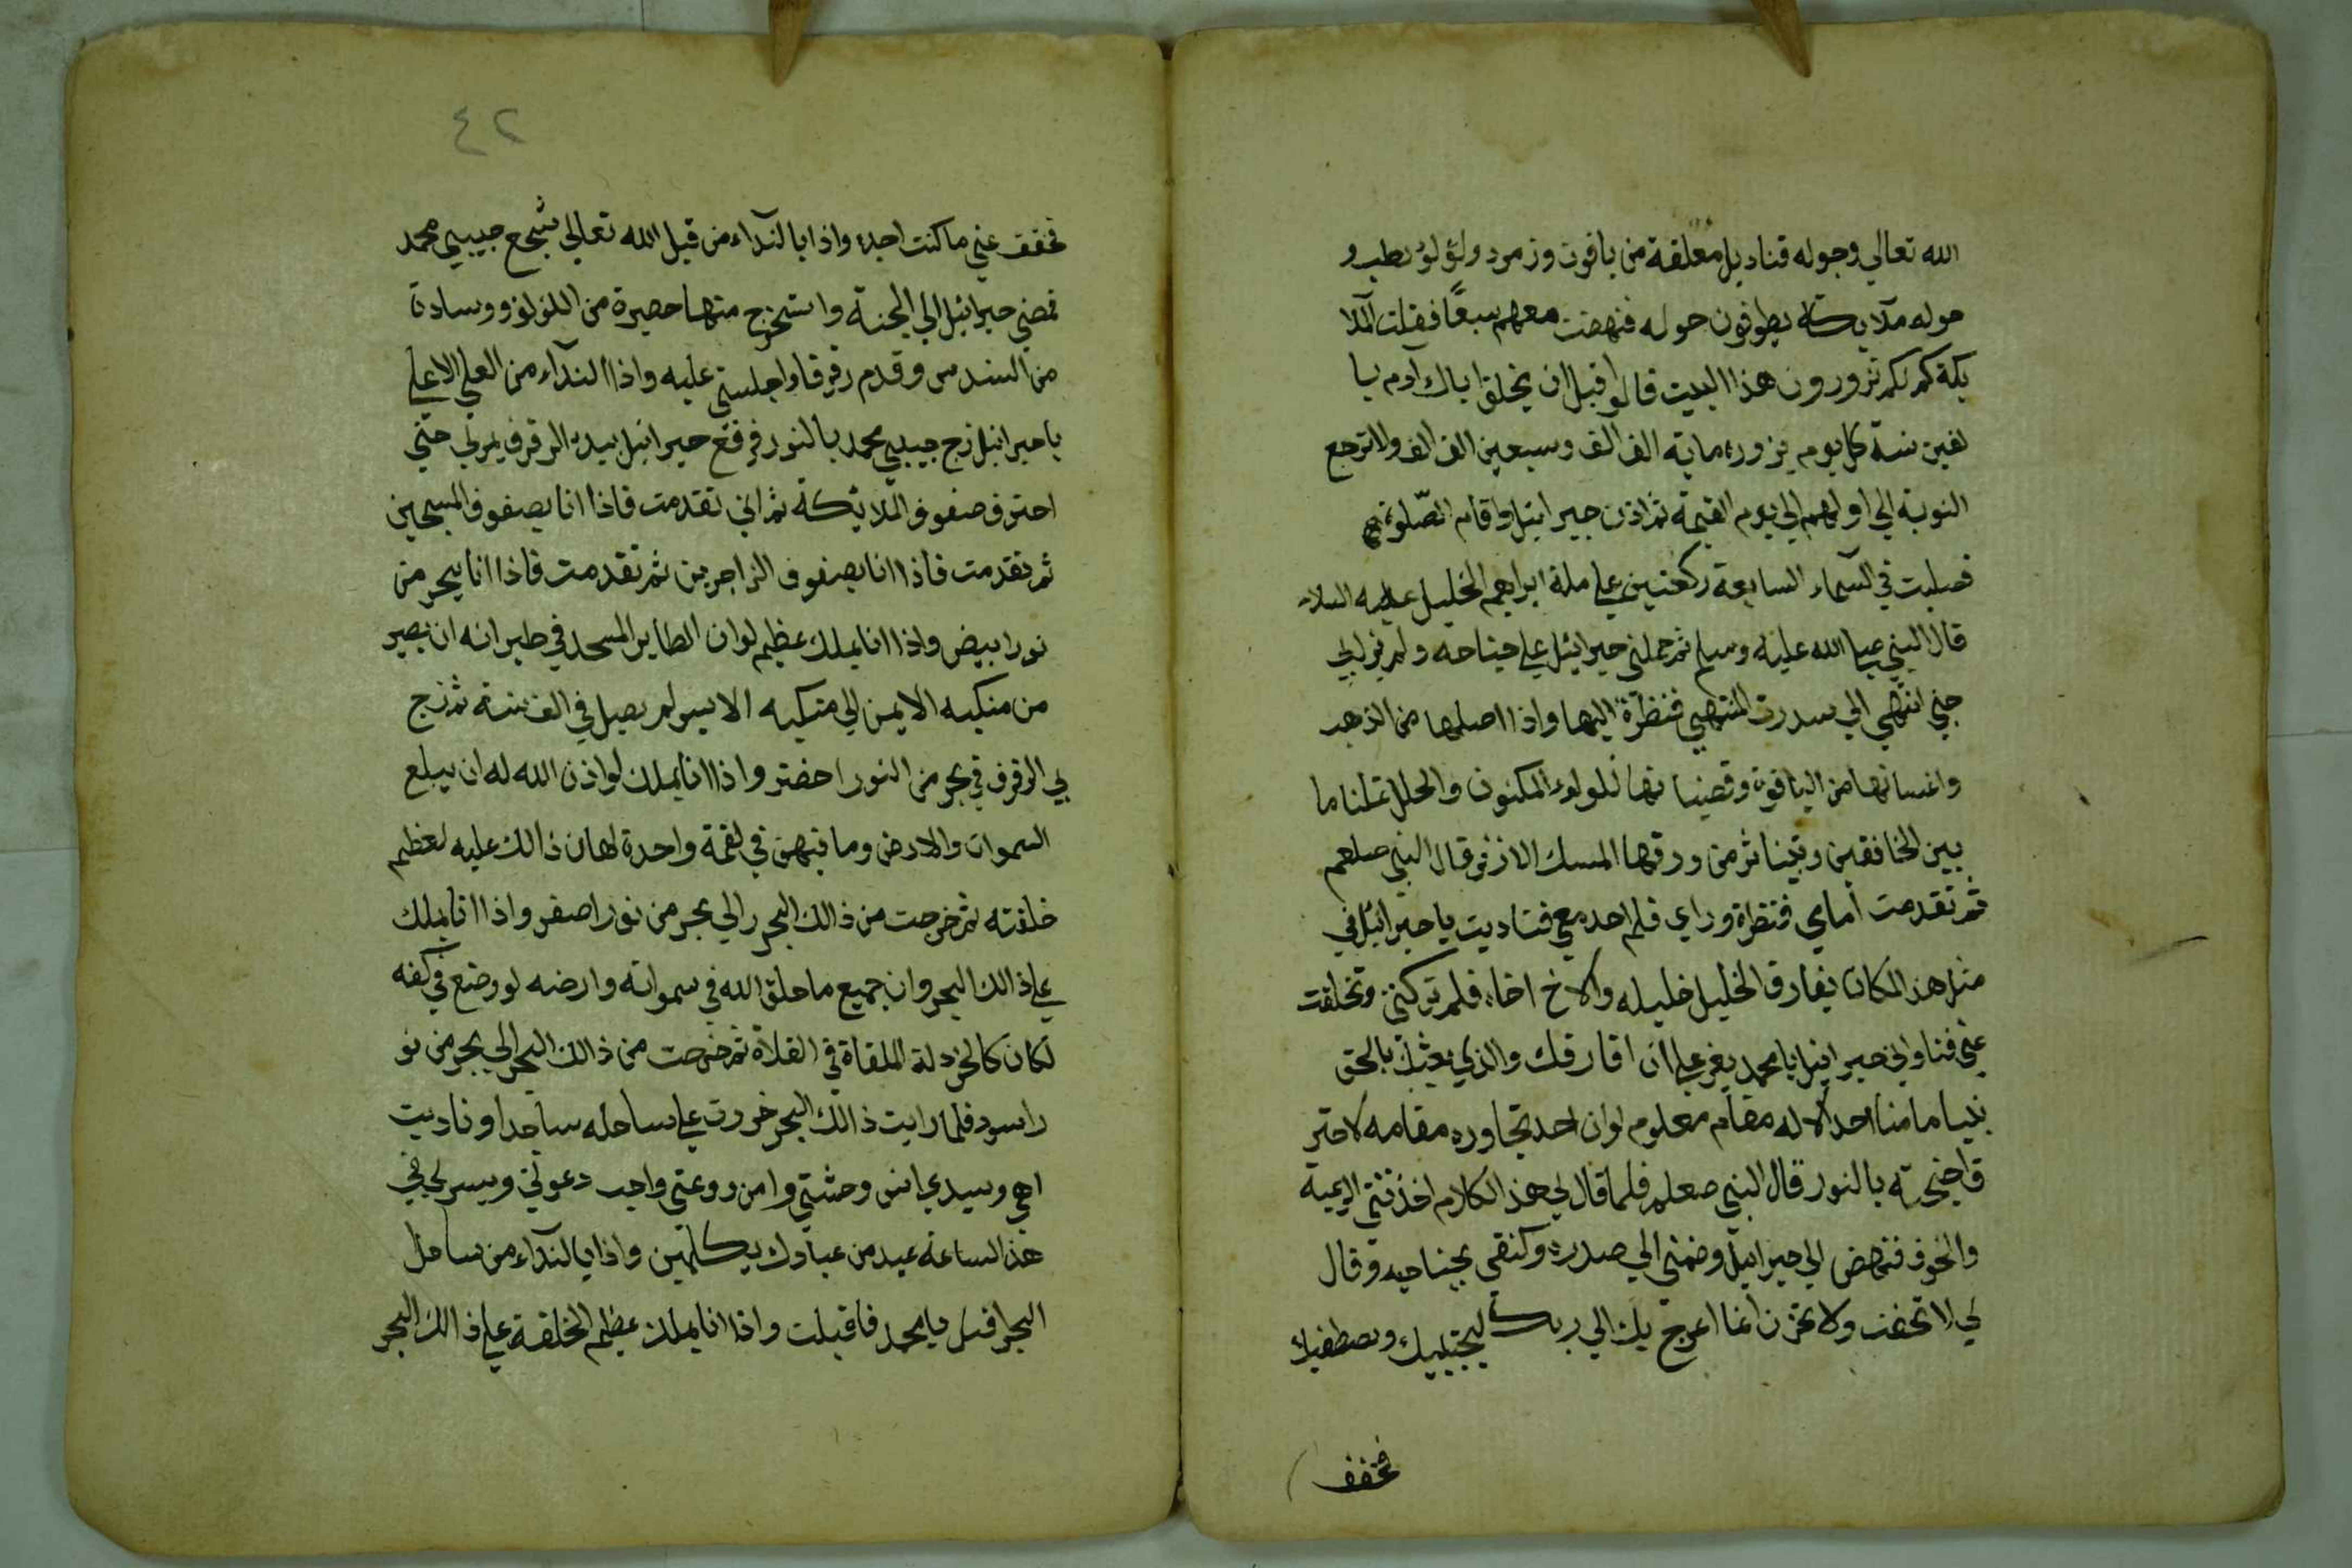 الله تعالي وحوله قناديل معلقة من ياقوت وزمرد ولؤلؤ رطب و
حوله ملايكة يطوفون حوله فنهضت معهم سبعًا فقلت للملا
يكة كم لكم تزورون هذا البيت قالوا قبل ان يخلق اباك آدم با
لفين سنة كل يوم يزوره ماية الف الف وسبعين الف الف ولا ترجع
النوبة الي اولهم الي يوم القيمة ثم اذن جبرائيل واقام الصّلوة
فصليت في السّماء السابعة ركعتين علي ملة ابراهيم الخليل عليه السلام
قال النبي صلي الله عليه وسلم ثم حملني جبرائيل علي جناحه ولم يزل بي
حتي انتهي الي سدرت المنتهي فنظرة اليها واذا اصلها من الذهب
واغسانها من الياقوة وقضبا نها للولوء المكنون والحلل تملنا ما
بين الخافقين ويتناثر من ورقها المسك الاذفر قال النبي صلعم
ثم تقدمت أمامي فنظرة وراي فلم احد معي فناديت يا جبرائيل في
مثل هذ المكان يفارق الخليل خليله والاخ اخاه فلم تركتني وتخلفت
عني فناداني جبرائيل يا محمد يعز علي ان افارقك والذي بعثك بالحق
نبيا ما منا احد الا له مقام معلوم لوان احد تجاوره مقامه لاحتر
ق اجنحته بالنور قال النبي صعلم فلما قال لي هذ الكلام اخذتني الهيبة
والخوف فنهض الي جبرائيل وضمني الي صدره وكنفني بجناحيه وقال
لي لا تخف ولا تحزن انما اعرج بك الي ربك ليجتبيك ويصطفيك
فخفف
٤٢
فخفف عني ما كنت اجده واذا بالنّداء من قبل الله تعالي شجع حبيبي محمد
فمضي جبرائيل الي الجنة واستخرج منها حصيرة من اللؤلؤ ووسادة
من السندس وقدم رفرفا واجلسني عليه واذا النداء من العلي الاعلي
يا جبرائيل زج حبيبي محمد بالنور فرفع جبرائيل بيده الرفرف يمر بي حتي
احترق صفوف الملائيكة ثم اني تقدمت فاذا انا بصفوف المسبحين
ثم تقدمت فاذا انا بصفوف الزاجرين ثم تقدمت فاذا انا ببحر من
نور ابيض واذا انا بملك عظيم لوان الطاير المسجد في طيرانه ان يصير
من منكبه الايمن الي منكبه الايسر لم يصل في الف سنة ثم زج
بي الرفرف في بحر من النور اخضر واذا انا بملك لو اذن الله له ان يبلع
السموات والارض وما فيهن في لقمة واحدة لهان ذالك عليه لعظيم
خلقته ثم خرجت من ذالك البحر الي بحر من نور اصفر واذا انا بملك
علي ذالك البحر وان جميع ما خلق الله في سمواته وارضه لو وضع في كفه
لكان كالخردلة الملقاة في الفلاة ثم خرجت من ذالك البحر الي بحر من نو
ر اسود فلما رايت ذالك البحر خررت علي ساحله ساجدا وناديت
الهي وسيدي انس وحشتي وامن روعتي واجب دعوتي ويسر لي في
هذ الساعة عبد من عبادك يكلمين واذا بالنّداء من ساحل
البحر اقبل يا محمد فاقبلت واذا انا بملك عظيم الخلقة علي ذالك البحر